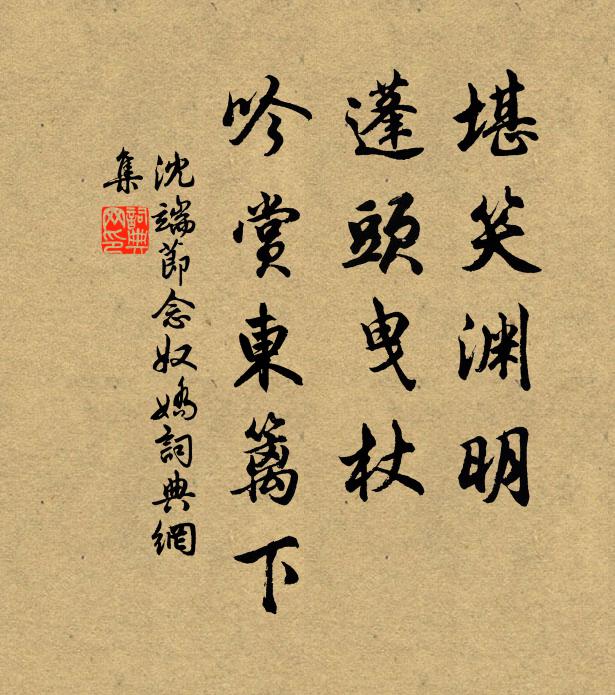 堪笑渊明
蓬頭曳杖
吟賞東篱下
沈端節念奴嬌詞典網
集
詞典网印